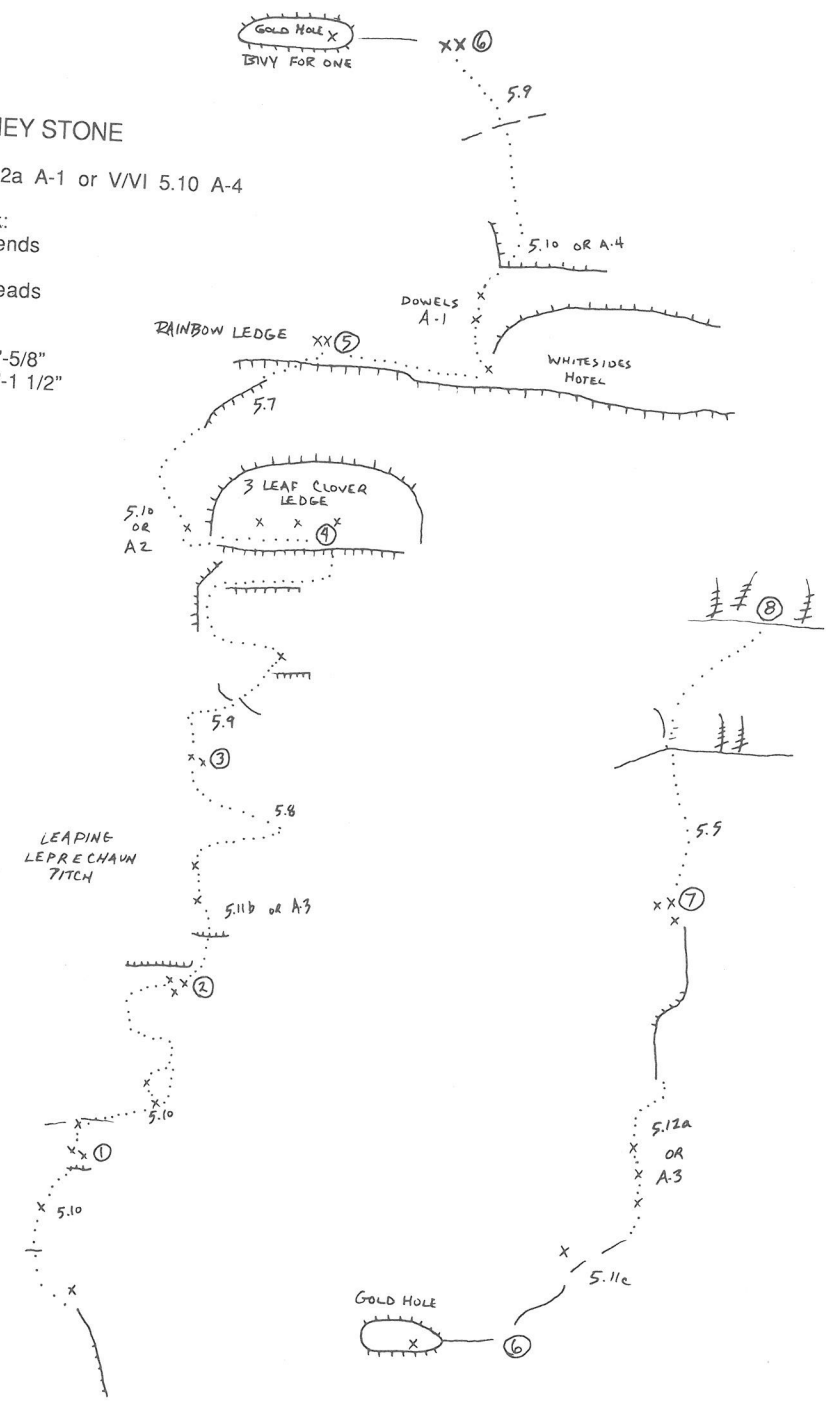 GOLD HOLE x
BIVY FOR ONE
xx 6
5.9
EY STONE
2a A-1 or V/VI 5.10 A-4
:
ends
eads
-5/8"
-1 1/2"
5.10 OR A.4
DOWELS
A-1
RAINBOW LEDGE
xx 5
WHITESIDES
HOTEL
5.7
3 LEAF CLOVER
LEDGE
x x x
4
5.10
OR
A2
x
8
x
5.9
x x 3
5.8
5.5
LEAPING
LEPRECHAUN
PITCH
x
x
5.11b OR A.3
x x 7
x
x x 2
x
x
x
5.10
x
x x 1
5.12a
OR
A.3
x
x
x
x 5.10
x
5.11c
x
GOLD HOLE
x
6